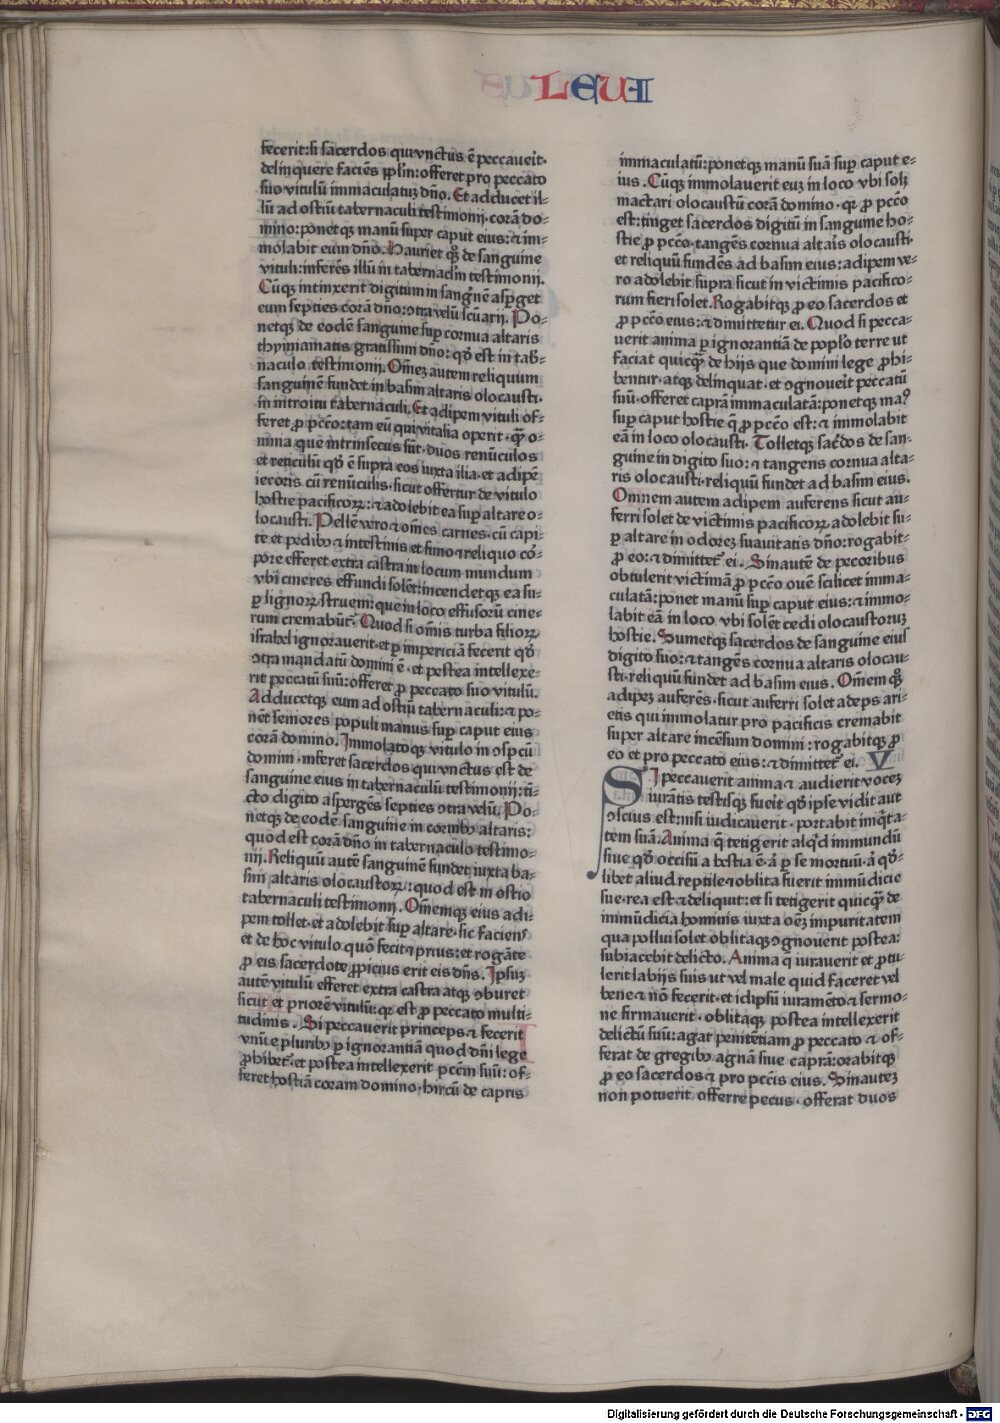 LEUI
fecerit: si sacerdos qui vnctus ē peccauerit.
delinquere faciēs pplm: offeret pro peccato
suo vitulū immaculatuꝫ dño. Et adducet il⸗
lū ad ostiū tabernaculi testimonij. corā do⸗
mino: ponetqꝫ manū super caput eius: ⁊ im⸗
molabit eum dño. Hauriet qꝫ de sanguine
vituli: inferēs illū in tabernaclm testimonij.
Cūqꝫ intinxerit digitum in sangͥnē asꝑget
eum septies corā dño: ↄtra velū scuarij. Po⸗
netqꝫ de eodē sanguine suꝑ cornua altaris
thymiamatis gratissimi dño: qđ est in tab̄⸗
naculo testimonij. Om̄eꝫ autem reliquum
sanguinē fundet in basim altaris olocausti.
in introitu tabernaculi. Et adipem vituli of⸗
feret ꝓ pccō: tam eū qui vitalia operit. qͣꝫ o⸗
mnia que intrinsecus sūt. duos renūculos
et reticulū qđ ē supra eos iuxta ilia. et adipē
iecoris cū renūculis. sicut offertur de vitulo
hostie pacificoꝝ: ⁊ adolebit ea suꝑ altare o⸗
locausti. Pellē vero ⁊ om̄es carnes. cū capi⸗
te et pedibꝰ ⁊ intestinis et fimo ⁊ reliquo cō⸗
pore efferet extra castra in locum mundum
vbi cineres effundi solēt: incendetqꝫ ea su⸗
ꝑ lignoꝝ struem: que in loco effusorū cine⸗
rum cremabūt᷑. Quod si om̄is turba filioꝝ
israhel ignorauerit. et ꝑ impericiā fecerit qđ
ↄtra mandatū domini ē. et postea intellexe⸗
rit peccatū suū: offeret ꝓ peccato suo vitulū.
Adducetqꝫ eum ad ostiū tabernaculi: ⁊ po⸗
nēt seniores populi manus suꝑ caput eius
corā domino. Immolatoqꝫ vitulo in ↄspcū
domini. inferet sacerdos qui vnctus est de
sanguine eius in tabernaculū testimonij: tī⸗
cto digito aspergēs septies ↄtra velū. Po⸗
netqꝫ de eodē sanguine in cornibꝰ altaris:
quod est corā dño in tabernaculo testimo⸗
nij. Reliquū autē sanguinē fundet iuxta ba⸗
sim altaris olocaustoꝝ: quod est in ostio
tabernaculi testimonij. Om̄emqꝫ eius adi⸗
pem tollet. et adolebit suꝑ altare. sic faciens
et de hoc vitulo quō fecit ⁊ prius: et rogāte
ꝓ eis sacerdote ꝓpicius erit eis dñs. Ipsuꝫ
autē vitulū efferet extra castra atqꝫ ↄburet
sicut et priorē vitulū: qꝛ est ꝓ peccato multi⸗
tudinis. Si peccauerit princeps ⁊ fecerit
vnū e pluribꝰ ꝑ ignorantiā quod dñi lege
ꝓhibet᷑. et postea intellexerit pccm suū: of⸗
feret hostiā coram domino. hircū de capris
immaculatū: ponetqꝫ manū suā suꝑ caput e⸗
ius. Cūqꝫ immolauerit euꝫ in loco vbi solꝫ
mactari olocaustū corā domino. qꝛ ꝓ pccō
est: tinget sacerdos digitū in sanguine ho⸗
stie ꝓ pccō. tangēs cornua altaris olocausti.
et reliquū fundēs ad basim eius: adipem ve⸗
ro adolebit supra sicut in victimis pacifico⸗
rum fieri solet. Rogabitqꝫ ꝓ eo sacerdos et
ꝓ pccō eius: ⁊ dimittetur ei. Quod si pecca⸗
uerit anima ꝑ ignorantiā de poplo terre ut
faciat quicqͣꝫ de hijs que domini lege ꝓhi⸗
bentur. atqꝫ delinquat. et ↄgnouerit peccatū
suū. offeret caprā immaculatā: ponetqꝫ maꝰ
suꝑ caput hostie q̄ ꝓ pccō est: ⁊ immolabit
eā in loco olocausti. Tolletqꝫ sac̄dos de san⸗
guine in digito suo: ⁊ tangens cornua alta⸗
ris olocausti. reliquū fundet ad basim eius.
Omnem autem adipem auferens sicut au⸗
ferri solet de victimis pacificoꝝ adolebit su⸗
ꝑ altare in odoreꝫ suauitatis dño: rogabit⸗
ꝓ eo: ⁊ dimittet᷑ ei. Sinautē de pecoribus
obtulerit victimā ꝓ pccō ouē scilicet imma⸗
culatā: ponet manū suꝑ caput eius: ⁊ immo⸗
labit eā in loco vbi solēt cedi olocaustoruꝫ
hostie. Sumetqꝫ sacerdos de sanguine eius
digito suo: ⁊ tangēs cornua altaris olocau⸗
sti. reliquū fundet ad basim eius. Om̄em qꝫ
adipeꝫ auferēs. sicut auferri solet adeps ari⸗
etis qui immolatur pro pacificis cremabit
super altare incēsum domini: rogabitqꝫ ꝓ
eo et pro peccato eius: ⁊ dimittet᷑ ei. V
SI peccauerit anima ⁊ audierit voceꝫ
iurātis testisqꝫ fuerit qđ ipse vidit aut
ↄscius est: nisi iudicauerit. portabit iniq̄ta⸗
tem suā. Anima q̄ tetigerit alqͥd inmundū
siue qđ occisū a bestia ē. aͭ ꝑ se mortuū. aͭ qđ⸗
libet aliud reptile ⁊ oblita fuerit inmūdicie
sue. rea est ⁊ deliquit: et si tetigerit quicqͣꝫ de
inmūdicia hominis iuxta oēꝫ impuritatem
qua pollui solet oblitaqꝫ ↄgnouerit postea:
subiacebit delicto. Anima q̄ iurauerit et ꝓtu⸗
lerit labijs suis ut vel male quid faceret vel
bene ⁊ nō fecerit. et idipsū iuramēto ⁊ sermo⸗
ne firmauerit. oblitaqꝫ postea intellexerit
delictū suū: agat penitētiam ꝓ peccato ⁊ of⸗
ferat de gregibꝰ agnā siue caprā: orabitqꝫ
ꝓ eo sacerdos ⁊ pro pccīs eius. Sinauteꝫ
non potuerit offerre pecus. offerat duos
Digitalisierung gefördert durch die Deutsche Forschungsgemeinschaft - DFG